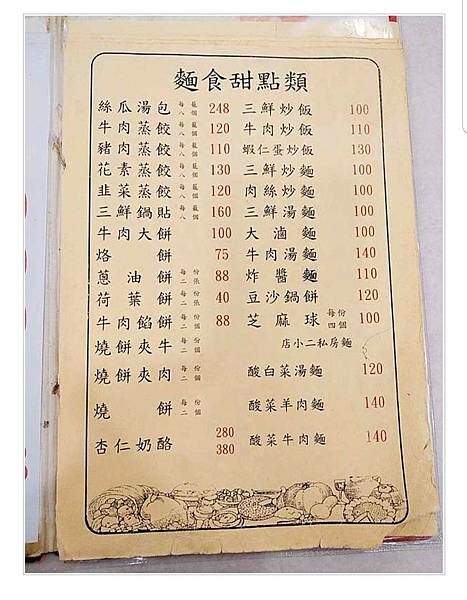 麵食甜點類
絲瓜湯包 每籠八個 248
牛肉蒸餃 每籠八個 120
豬肉蒸餃 每籠八個 110
花素蒸餃 每籠八個 130
韭菜蒸餃 每籠八個 120
三鮮鍋貼 每籠八個 160
牛肉大餅 100
烙餅 75
蔥油餅 每份二張 88
荷葉餅 每份二張 40
牛肉餡餅 每份二個 88
燒餅夾牛 每份二個
燒餅夾肉 每份二個
燒餅 每份二個
杏仁奶酪 280 380
三鮮炒飯 100
牛肉炒飯 110
蝦仁蛋炒飯 130
三鮮炒麵 100
肉絲炒麵 100
三鮮湯麵 100
大滷麵 100
牛肉湯麵 140
炸醬麵 110
豆沙鍋餅 120
芝麻球 每份四個 100
店小二私房麵
酸白菜湯麵 120
酸菜羊肉麵 140
酸菜牛肉麵 140